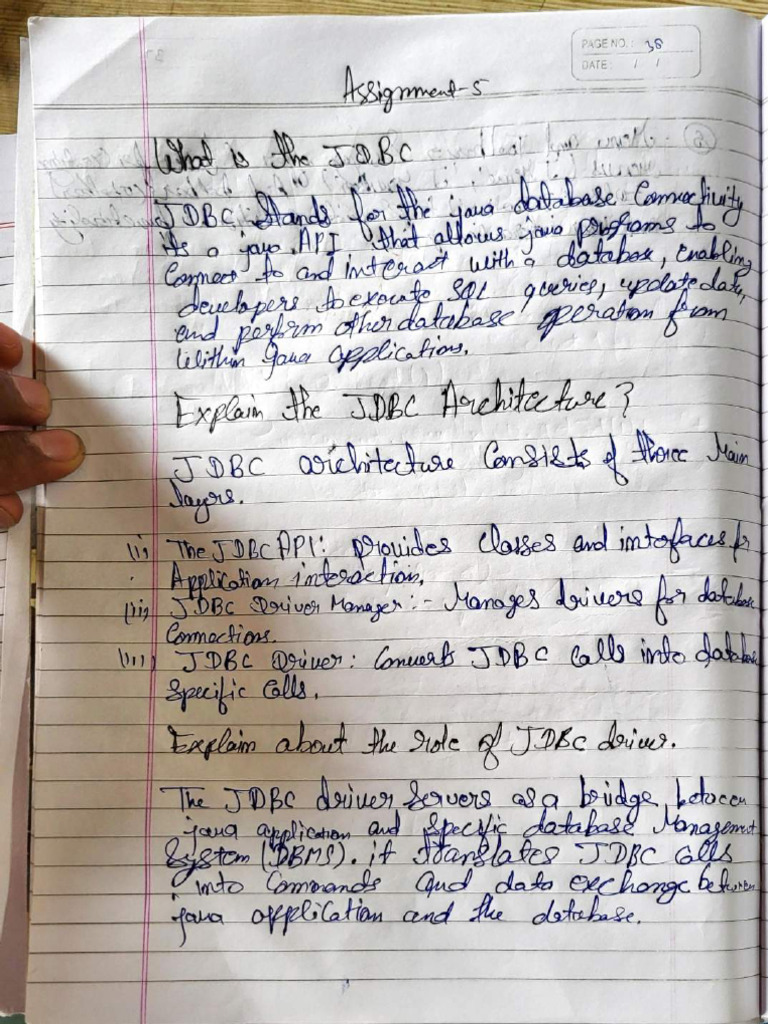 PAGE NO.: 38
DATE: / /
Assignment-5
What is the JDBC
JDBC Stands for the java database Connectivity
its a java API that allows java programs to
Connect to and interact with a database, enabling
developers to execute SQL queries, update data,
and perform other database operation from
Within Java applications.
Explain the JDBC Architecture?
JDBC architecture Consists of three Main
layrs.
(i) The JDBC API: provides classes and interfaces fr
Application interaction.
(ii) JDBC Driver Manager:- Manages drivers for database
Connections.
(iii) JDBC Driver: Converts JDBC Calls into database
Specific Calls.
Explain about the role of JDBC driver.
The JDBC driver Servers as a bridge between
java application and Specific database Management
System (DBMS). it translates JDBC calls
into Commands and data exchange between
java application and the database.